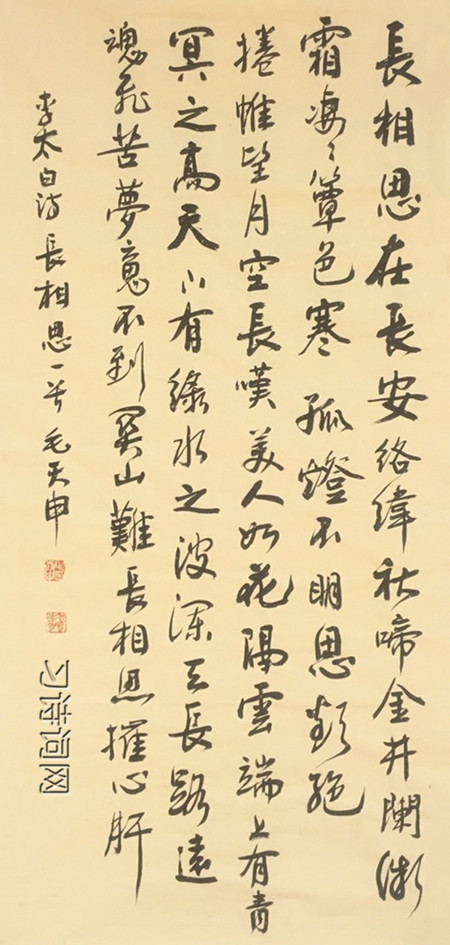 長相思在長安絡緯秋啼金井闌微
霜凄々簟色寒孤燈不明思欲絕
捲帷望月空長嘆美人如花隔雲端上有青
冥之高天下有綠水之波瀾天長路遠
魂飛苦夢魂不到關山難長相思摧心肝
李太白詩長相思一首毛天申
习诗词网